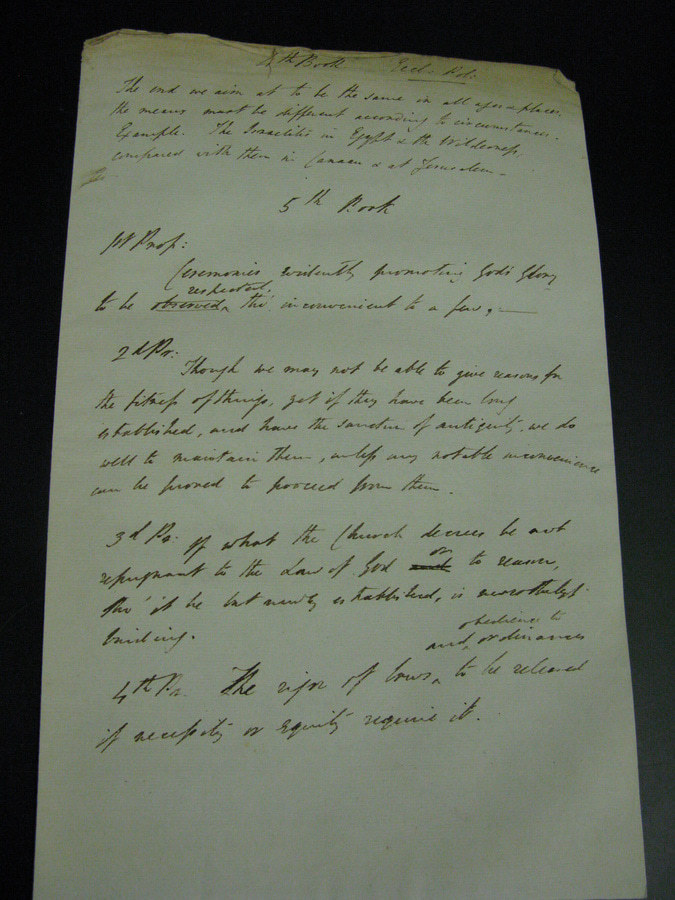 4th Book Eccl. Pol:
The end we aim at to be the same in all ages & places,
the means must be different according to circumstances.
Example. The Israelites in Egypt & the Wilderness,
compared with them in Canaan & at Jerusalem.
5th Book
1st Prop:
Ceremonies evidently promoting God's Glory
respected,
to be observed, tho' inconvenient to a few,
2d Pr:
Though we may not be able to give reasons for
the fitness of things, yet if they have been long
established, and have the sanction of antiquity, we do
well to maintain them, unless any notable inconvenience
can be proved to proceed from them.
3d Pr. If what the Church decrees be not
or
repugnant to the Law of God and to reason,
tho' it be but newly established, is nevertheless
binding.
obedience to
and, ordinances
4th Pr. The rigor of laws, to be relaxed
if necessity or Equity require it.